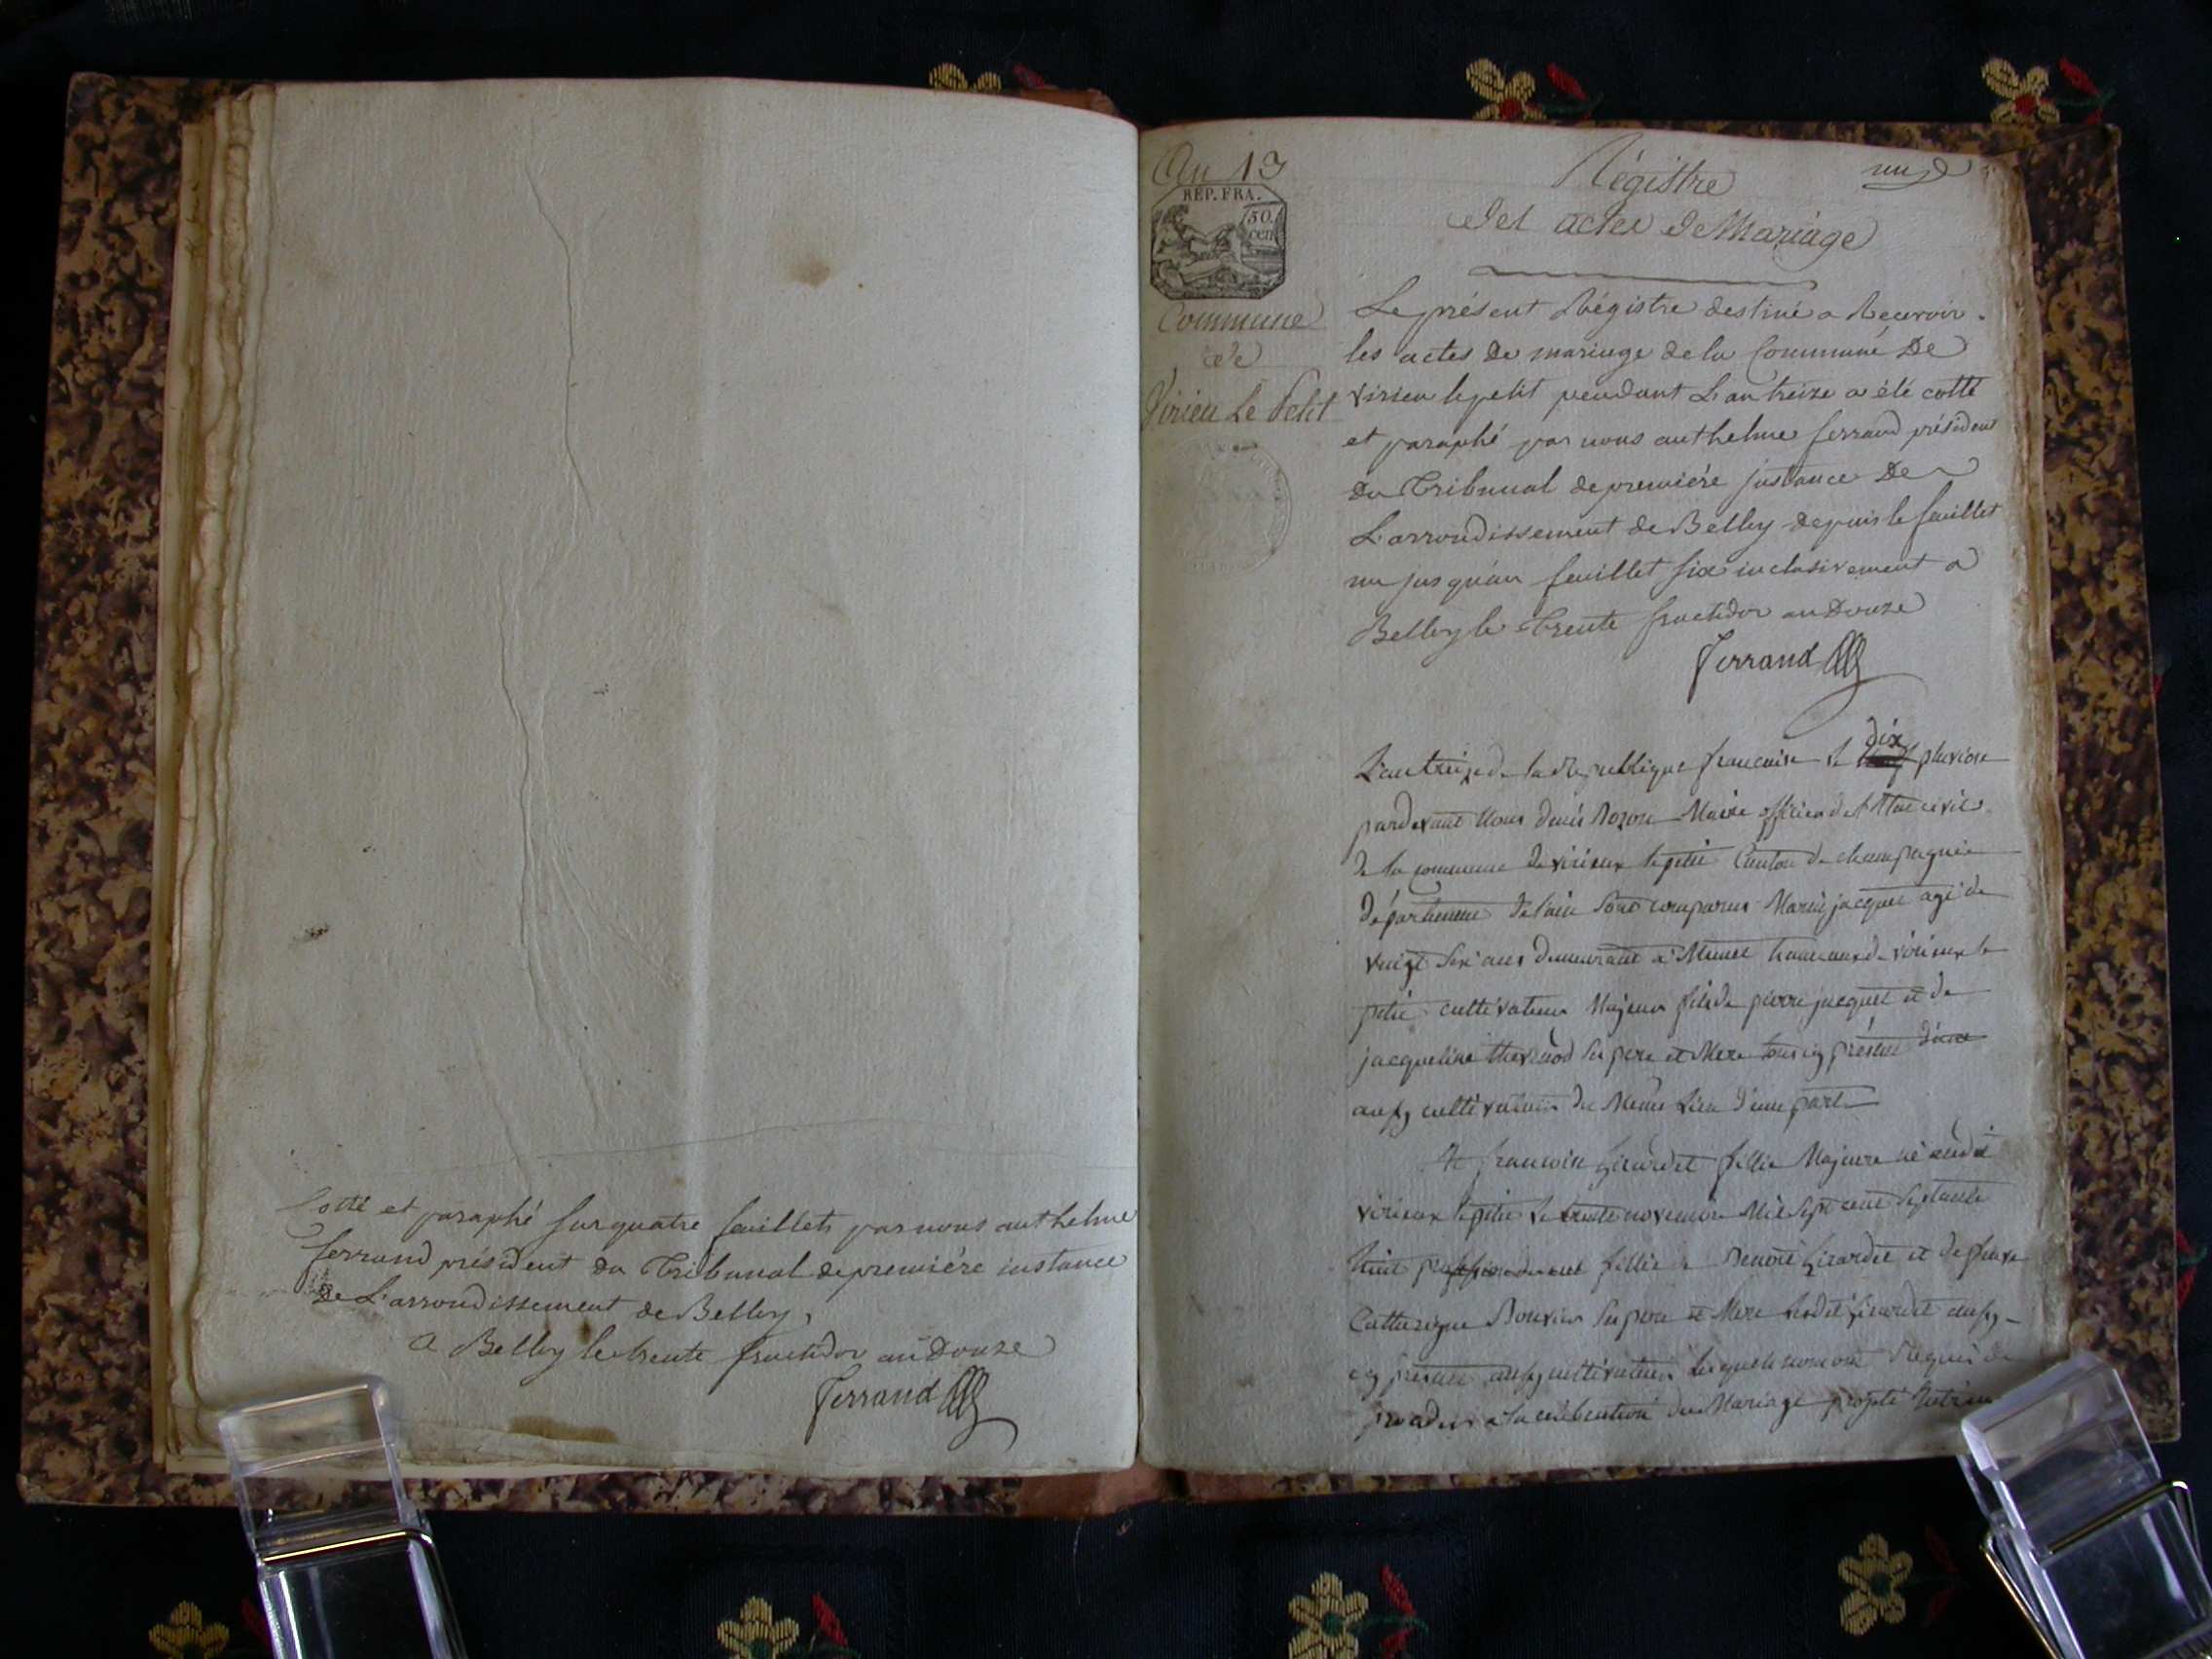 Cotté et paraphé sur quatre feuillets par nous anthelme
ferrand président du Tribunal de premiére instance
De L'arrondissement de Belley,
a Belley le trente fructidor an Douze
Ferrand
An 13
REP. FRA.
50.
cen
Commune
de
Virieu Le Petit
un
Régistre
des actes de Mariage
Le présent Régistre destiné a Recevoir
les actes De mariage de la Commune De
virieu le petit pendant L'an treize a été cotté
et paraphé par nous anthelme ferrand président
Du Tribunal de premiére instance De
L'arrondissement de Belley depuis le feuillet
un jusqu'au feuillet six inclusivement a
Belley le trente fructidor an Douze
Ferrand
L'an treize de la République francaise le dix pluviose
pardevant Nous denis Maire officier de l'Etat civil
de la commune de virieux le petit Canton de champagne
département de l'ain sont comparus Marin jacquet agé de
vingt six ans demeurant a Munet hameaux de virieux le
petit cultivateur Majeur fils de pierre jacquet et de
jacqueline thevenod ses pere et Mere tous cy présent
aussy cultivateurs du Meme Lieu d'une part
Et francoise girardet fillie Majeure né audit
virieux le petit le trente novembre Mil sept cent septante
huit fillie a Benoit girardet et de feue
Catherine Bouvier ses pere et Mere ledit girardet aussy
cy présent aussy cultivateur lesquels nous ont Requis de
proceder a la celebration du Mariage projeté